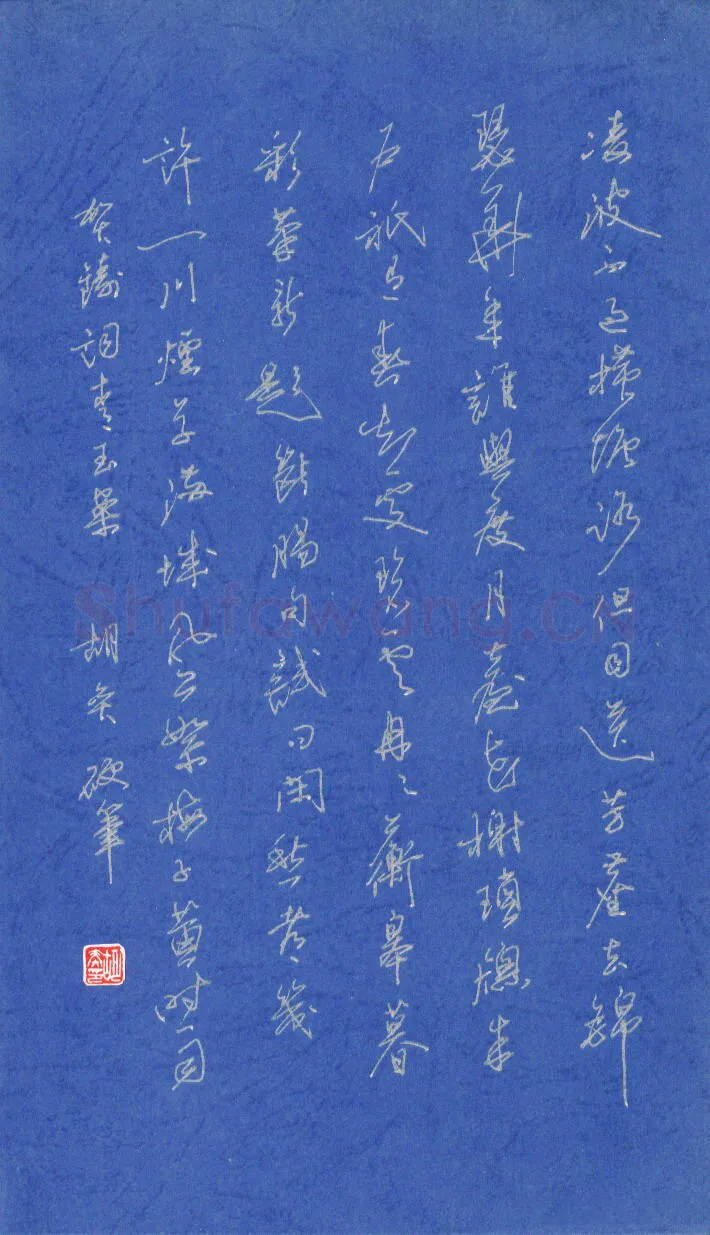 凌波不過橫塘路但目送芳塵去錦
瑟華年誰與度月臺花榭瑣窗朱
戶祇有春知處碧雲冉〻蘅皋暮
彩筆新題斷腸句試問閑愁都幾
許一川煙草滿城風絮梅子黃時雨
賀鑄詞青玉案 胡 硬筆
Shufawang.CN